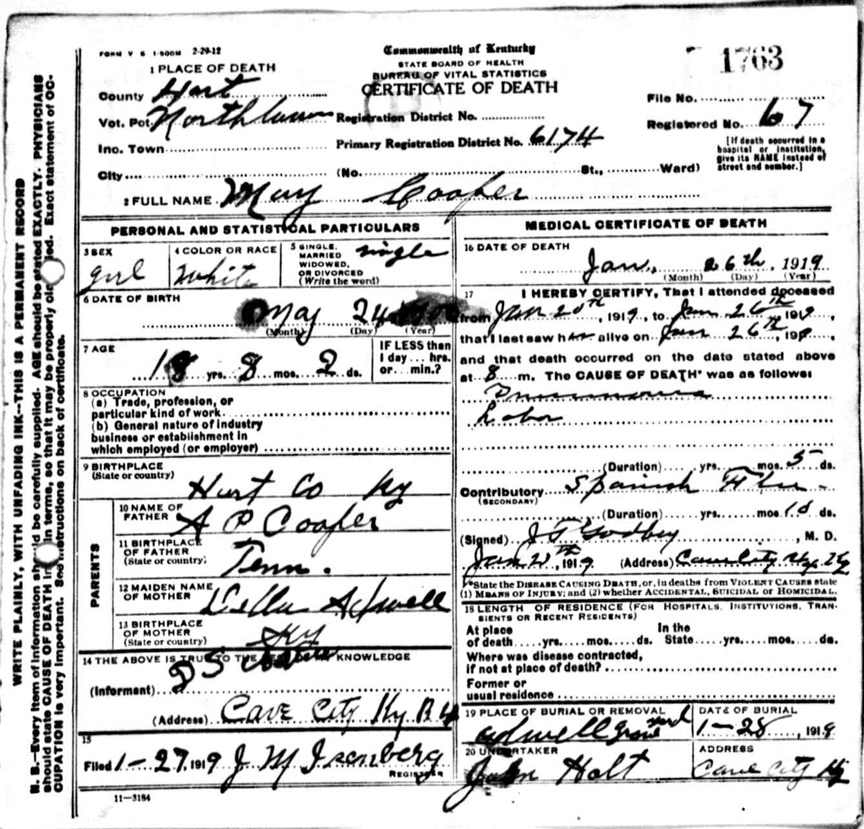 FORM V S 1-500M 2-29-12
Commonwealth of Kentucky
STATE BOARD OF HEALTH
BUREAU OF VITAL STATISTICS
CERTIFICATE OF DEATH
1763
1 PLACE OF DEATH
County Hart
Vot. Pct Northtown Registration District No.
File No.
Inc. Town Primary Registration District No. 6174
Registered No. 67
[If death occurred in a hospital or institution, give its NAME instead of street and number.]
City (No. St., Ward)
2 FULL NAME May Cooper
PERSONAL AND STATISTICAL PARTICULARS
3 SEX girl
4 COLOR OR RACE White
5 SINGLE, MARRIED WIDOWED, OR DIVORCED (Write the word) single
6 DATE OF BIRTH
May 24
(Month) (Day) (Year)
7 AGE
18 yrs. 8 mos. 2 ds.
IF LESS than 1 day ... hrs. or ... min.?
8 OCCUPATION
(a) Trade, profession, or
particular kind of work
(b) General nature of industry
business or establishment in
which employed (or employer)
9 BIRTHPLACE
(State or country)
Hart Co Ky
PARENTS
10 NAME OF FATHER A P Cooper
11 BIRTHPLACE OF FATHER (State or country) Tenn.
12 MAIDEN NAME OF MOTHER Adwell
13 BIRTHPLACE OF MOTHER (State or country) Ky
14 THE ABOVE IS TRUE TO THE KNOWLEDGE
(Informant) D S
(Address) Cave City Ky R 4
15
Filed 1-27, 1919 J M Isenberg
REGISTRAR
11-3184
MEDICAL CERTIFICATE OF DEATH
16 DATE OF DEATH
Jan. 26th, 1919
(Month) (Day) (Year)
17 I HEREBY CERTIFY, That I attended deceased
from Jan 20th, 1919, to Jan 26th, 1919,
that I last saw her alive on Jan 26th, 191
and that death occurred on the date stated above
at 8 m. The CAUSE OF DEATH* was as follows:
Pneumonia
Lobar
(Duration) yrs. mos. 5 ds.
Contributory Spanish Flu
(SECONDARY)
(Duration) yrs. mos. 10 ds.
(Signed) J T Godbey, M. D.
Jan, 1919 (Address) Cave City Ky
*State the DISEASE CAUSING DEATH, or, in deaths from VIOLENT CAUSES state
(1) MEANS OF INJURY; and (2) whether ACCIDENTAL, SUICIDAL or HOMICIDAL.
18 LENGTH OF RESIDENCE (FOR HOSPITALS, INSTITUTIONS, TRANSIENTS OR RECENT RESIDENTS)
At place of death yrs. mos. ds. In the State yrs. mos. ds.
Where was disease contracted,
if not at place of death?
Former or
usual residence
19 PLACE OF BURIAL OR REMOVAL
Adwell Grave yard
DATE OF BURIAL
1-28, 1919
20 UNDERTAKER
John Holt
ADDRESS
Cave City Ky
WRITE PLAINLY, WITH UNFADING INK—THIS IS A PERMANENT RECORD
N. B.—Every item of information should be carefully supplied. AGE should be stated EXACTLY. PHYSICIANS
should state CAUSE OF DEATH in terms, so that it may be properly classified. Exact statement of OC-
CUPATION is very important. See instructions on back of certificate.